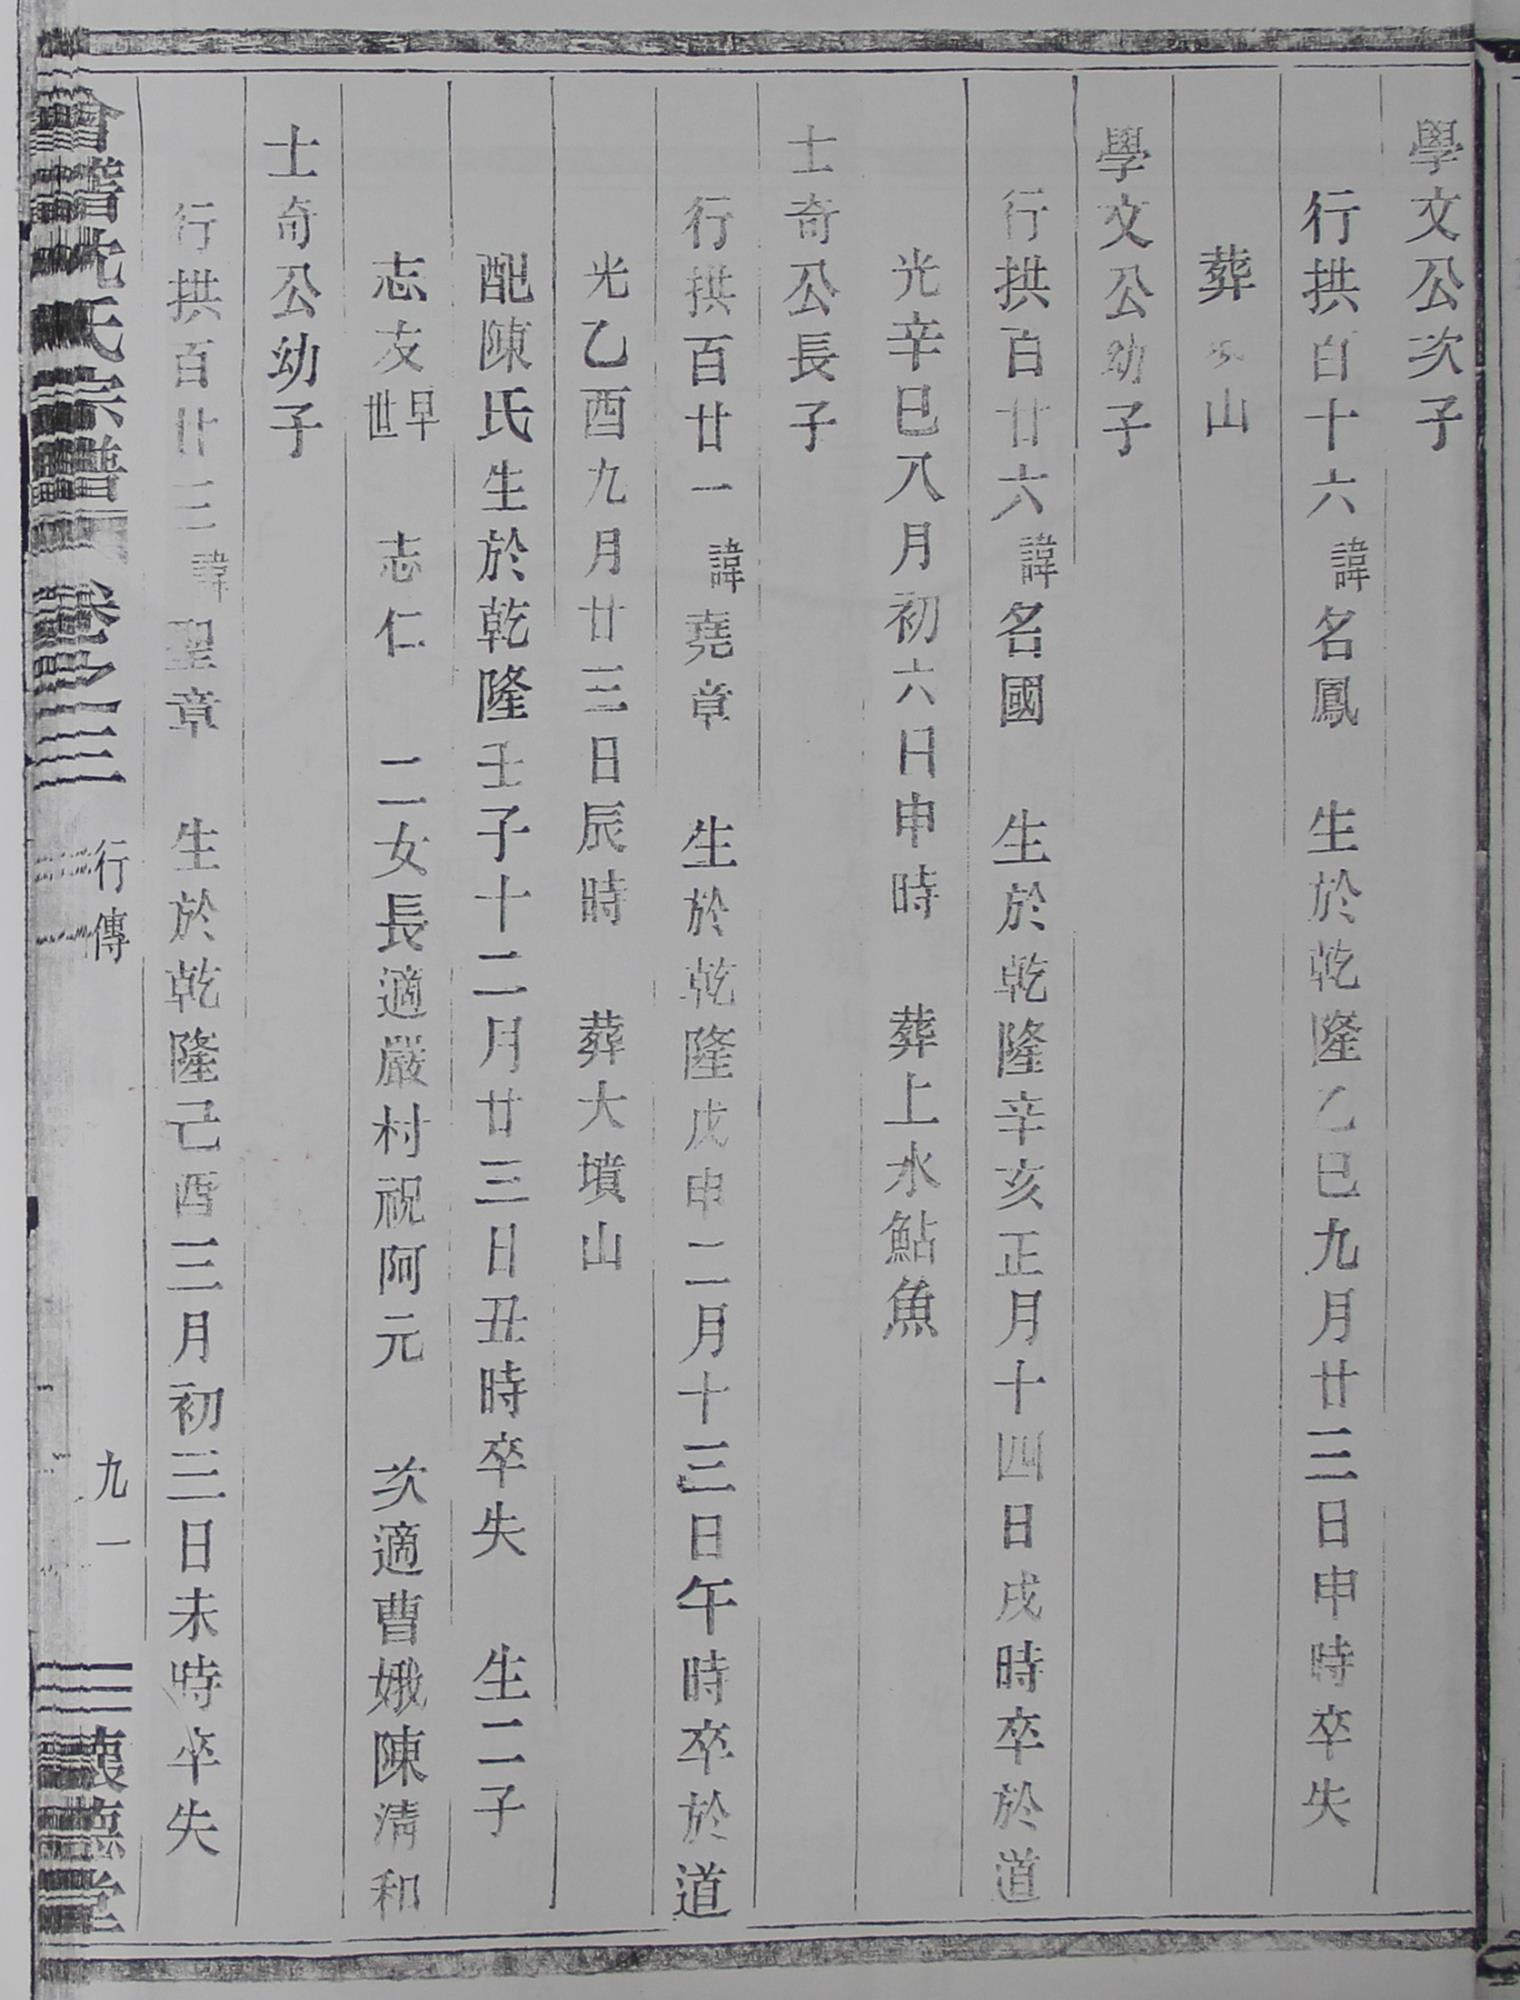 學文公次子
行拱百十六諱名鳳　生於乾隆乙巳九月廿三日申時卒失
葬　山
學文公幼子
行拱百廿六諱名國　生於乾隆辛亥正月十四日戌時卒於道
光辛巳八月初六日申時　葬上水鮎魚
士奇公長子
行拱百廿一諱堯章　生於乾隆戊申二月十三日午時卒於道
光乙酉九月廿三日辰時　葬大墳山
配陳氏生於乾隆壬子十二月廿三日丑時卒失　生二子
志友早世　志仁　二女長適嚴村祝阿元　次適曹娥陳淸和
士奇公幼子
行拱百廿三諱聖章　生於乾隆己酉三月初三日未時卒失
會稽沈氏宗譜　卷之三　行傳　九一